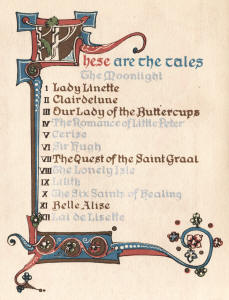 These are the tales
The Moonlight
I Lady Linette
II Clairdelune
III Our Lady of the Buttercups
IV The Romance of Little Peter
V Cerise
VI Sir Hugh
VII The Quest of the Saint Graal
VIII The Lonely Isle
IX Lilith
X The Six Saints of Healing
XI Belle Alise
XII Lai de Lisette